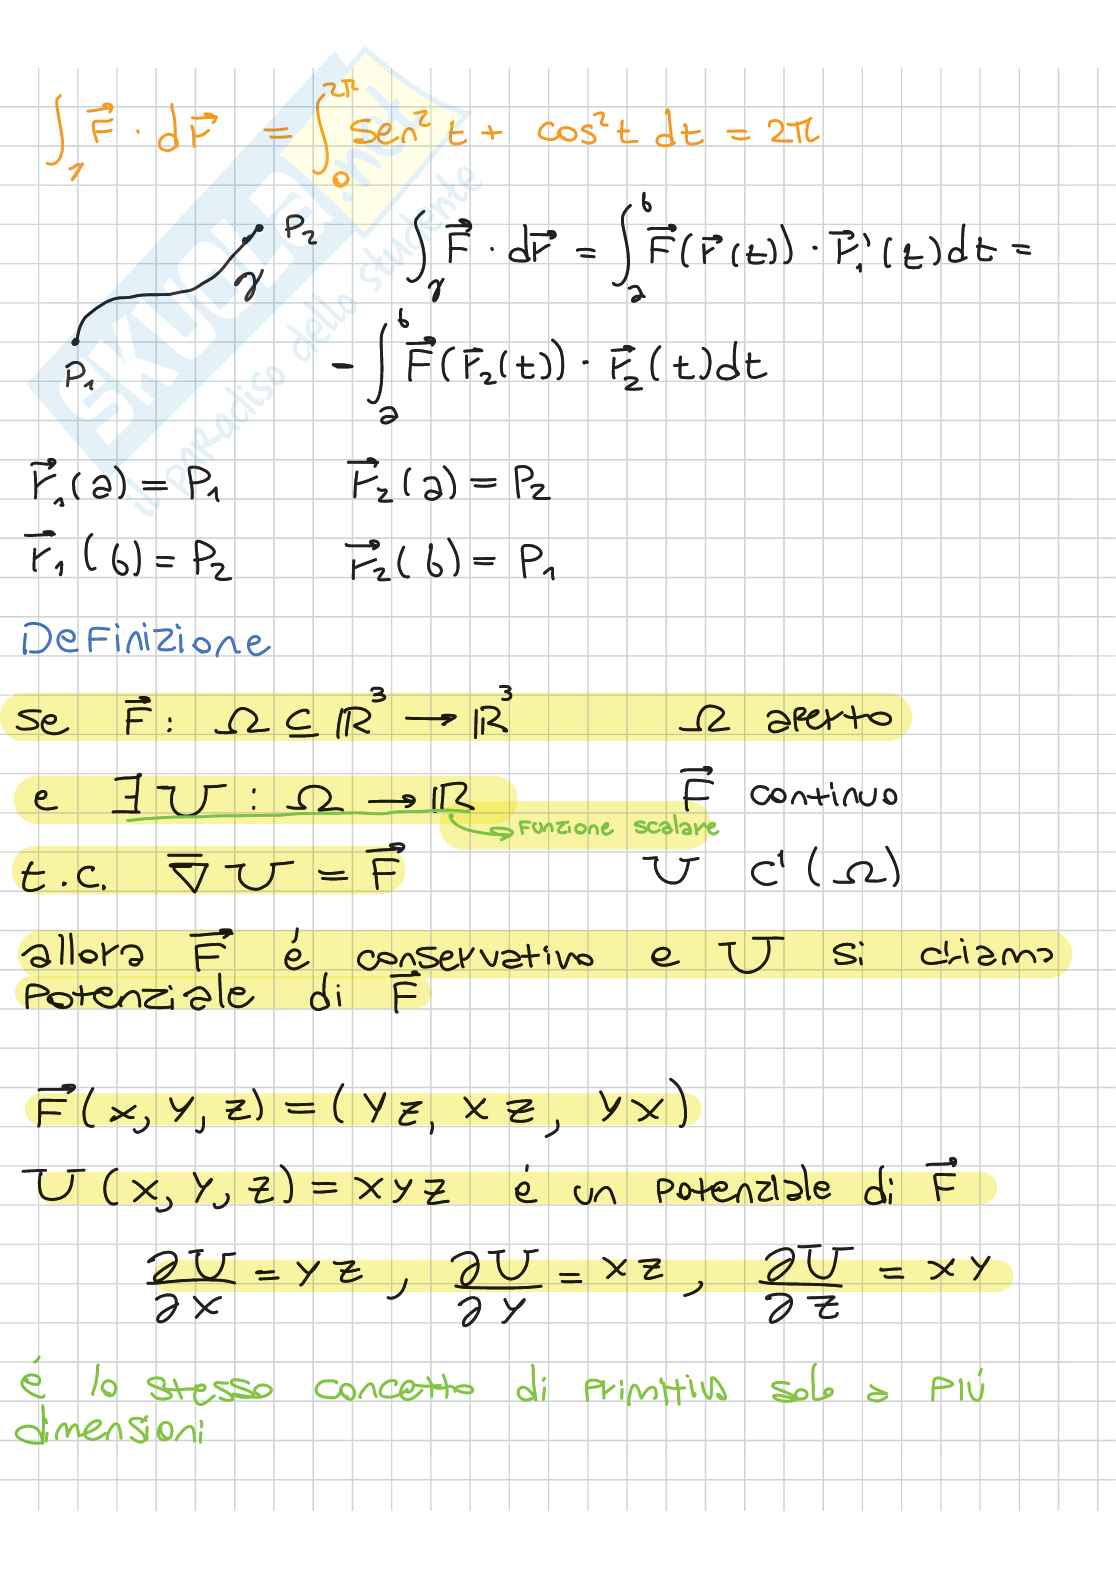 ∫₁ F⃗ · dr⃗ = ∫₀^2π sen² t + cos² t dt = 2π
P₂
γ
P₁
∫_γ F⃗ · dr⃗ = ∫_a^b F⃗(r⃗(t)) · r⃗₁'(t)dt =
- ∫_a^b F⃗(r⃗₂(t)) · r⃗₂(t)dt
r⃗₁(a) = P₁ r⃗₂(a) = P₂
r⃗₁(b) = P₂ r⃗₂(b) = P₁
Definizione
se F⃗ : Ω ⊆ ℝ³ → ℝ³ Ω aperto
e ∃ U : Ω → ℝ F⃗ continuo
Funzione scalare
t.c. ∇̅ U = F⃗ U C¹(Ω)
allora F⃗ é conservativo e U si chiama
Potenziale di F⃗
F⃗(x, y, z) = (yz, xz, yx)
U(x, y, z) = xyz é un potenziale di F⃗
∂U/∂x = yz , ∂U/∂y = xz , ∂U/∂z = xy
é lo stesso concetto di primitiva solo a piú
dimensioni
SKUOLA.net
il paradiso dello studente